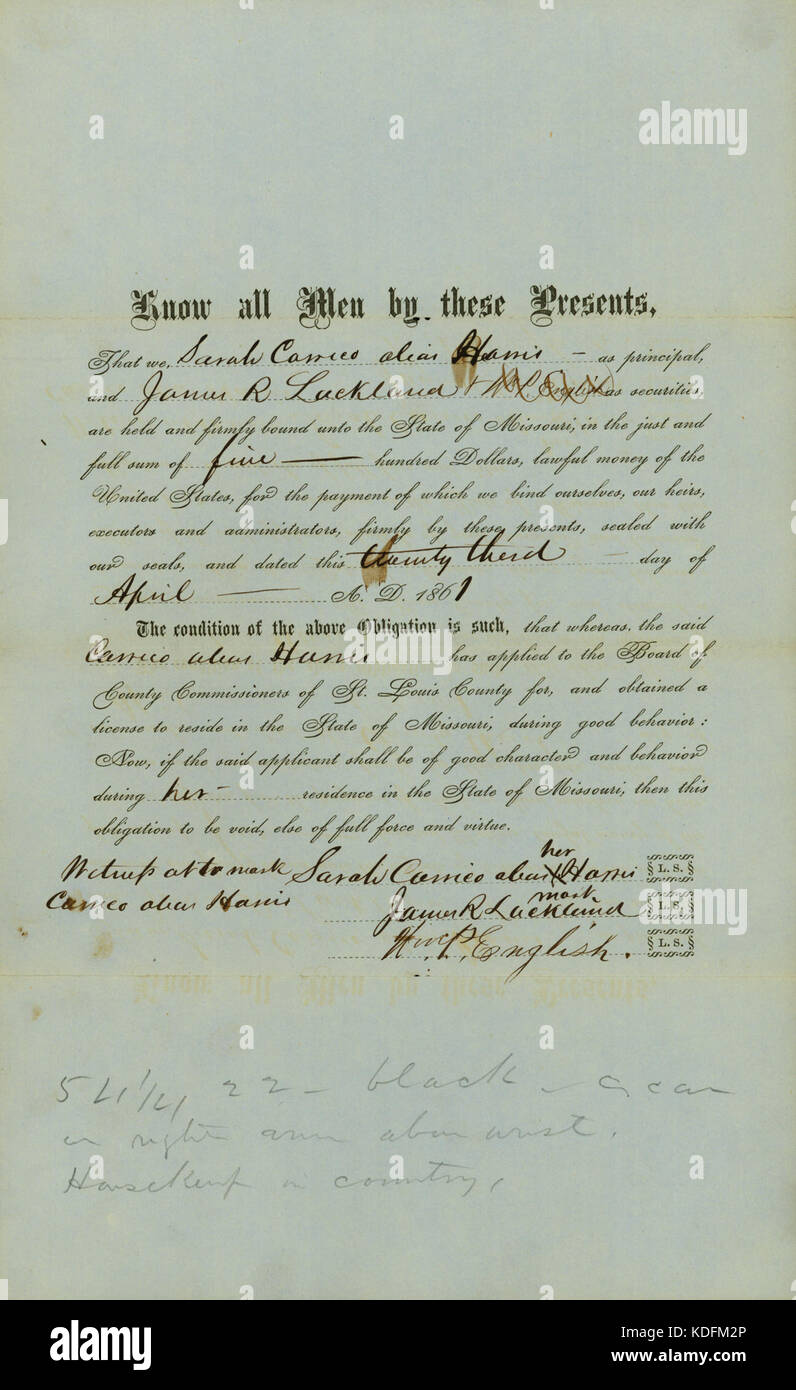 alamy
Know all Men by these Presents,
That we, Sarah Carrico alias Harris - as principal,
and James R Lackland & Wm P. English as securities,
are held and firmly bound unto the State of Missouri, in the just and
full sum of five hundred Dollars, lawful money of the
United States, for the payment of which we bind ourselves, our heirs,
executors and administrators, firmly by these presents, sealed with
our seals, and dated this twenty third day of
April A. D. 1861
The condition of the above Obligation is such, that whereas, the said
Carrico alias Harris has applied to the Board of
County Commissioners of St. Louis County for, and obtained a
license to reside in the State of Missouri, during good behavior:
Now, if the said applicant shall be of good character and behavior
during her residence in the State of Missouri, then this
obligation to be void, else of full force and virtue.
her
Witness as to mark Sarah Carrico alias X Harris L. S.
mark
Carrico alias Harris James R Lackland L. S.
English. L. S.
5 4 1/4, 22 - black - a scar
on right arm above wrist.
Housekeep in country,
alamy
Image ID: KDFM2P
www.alamy.com